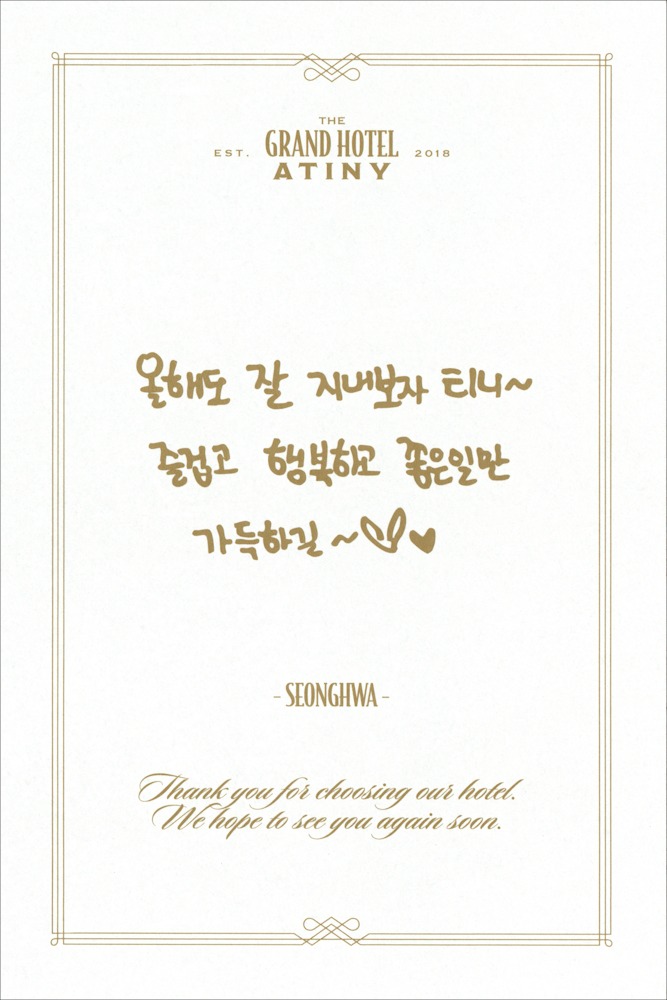 THE
EST. GRAND HOTEL 2018
ATINY
올해도 잘 지내보자 티니~
즐겁고 행복하고 좋은일만
가득하길 ~ ♥
- SEONGHWA -
Thank you for choosing our hotel.
We hope to see you again soon.